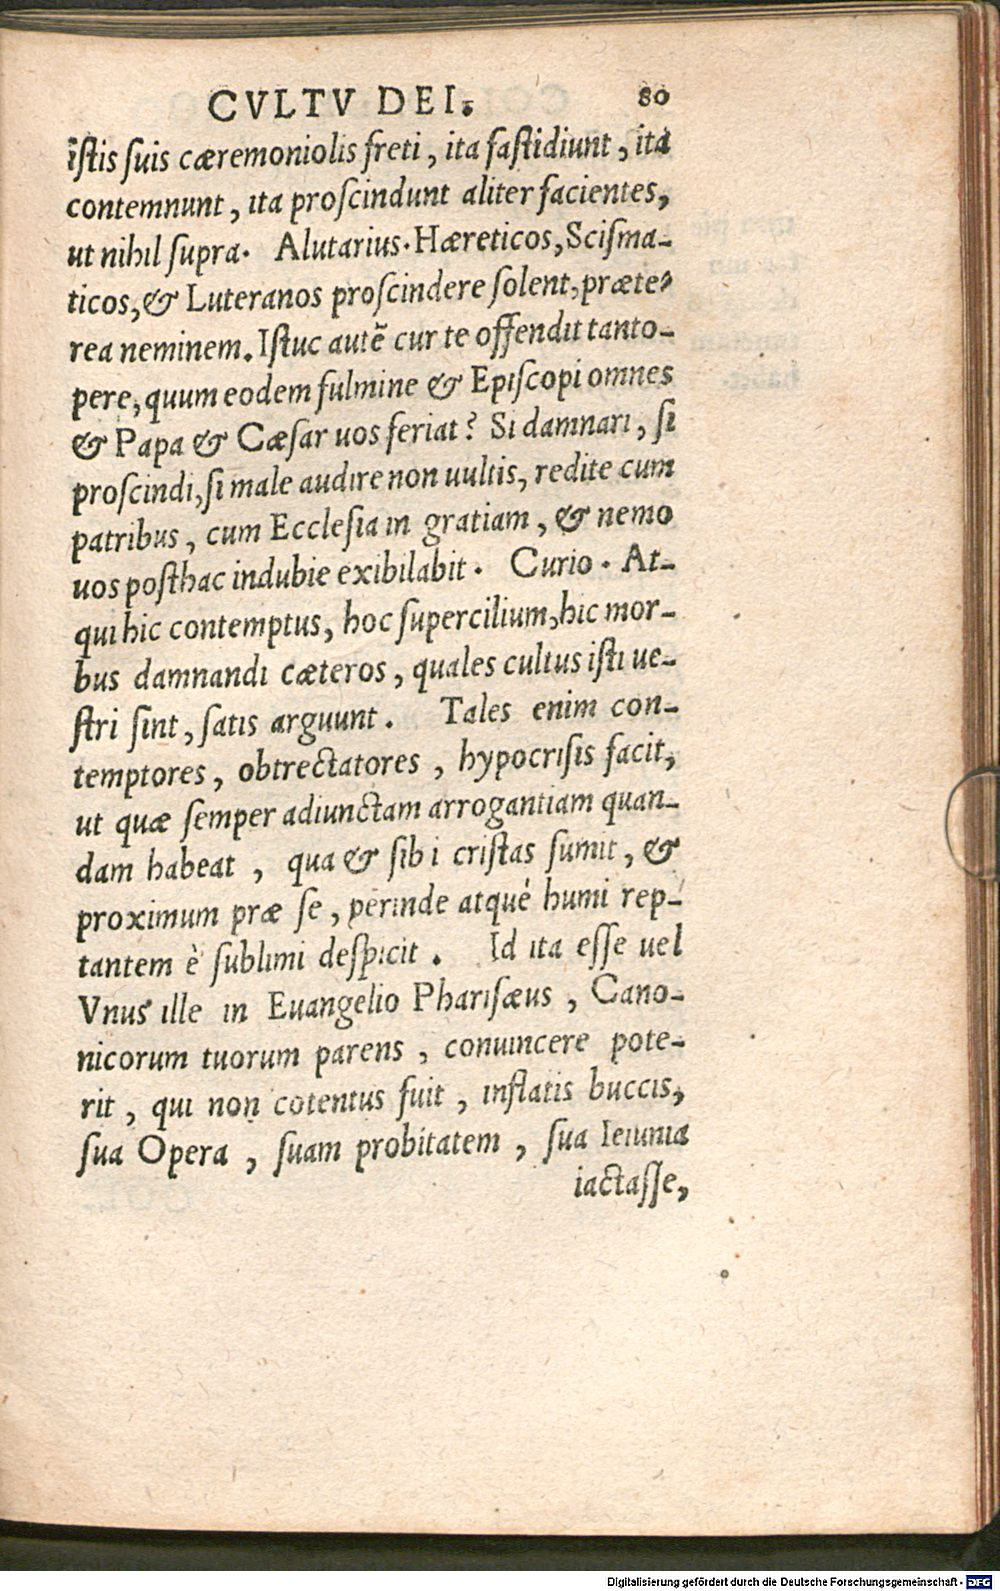 CVLTV DEI. 80
īstis suis cæremoniolis freti, ita fastidiunt, ita
contemnunt, ita proscindunt aliter facientes,
ut nihil supra. Alutarius. Hæreticos, Scisma-
ticos, & Luteranos proscindere solent, præte-
rea neminem. Istuc autē cur te offendit tanto-
pere, quum eodem fulmine & Episcopi omnes
& Papa & Cæsar uos feriat? Si damnari, si
proscindi, si male audire non uultis, redite cum
patribus, cum Ecclesia in gratiam, & nemo
uos posthac indubie exibilabit. Curio. At-
qui hic contemptus, hoc supercilium, hic mor-
bus damnandi cæteros, quales cultus isti ue-
stri sint, satis arguunt. Tales enim con-
temptores, obtrectatores, hypocrisis facit,
ut quæ semper adiunctam arrogantiam quan-
dam habeat, qua & sibi cristas sumit, &
proximum præ se, perinde atqué humi rep-
tantem è sublimi despicit. Id ita esse uel
Vnus ille in Euangelio Pharisæus, Cano-
nicorum tuorum parens, conuincere pote-
rit, qui non cotentus fuit, inflatis buccis,
sua Opera, suam probitatem, sua Ieiunia
iactasse,
Digitalisierung gefördert durch die Deutsche Forschungsgemeinschaft - DFG